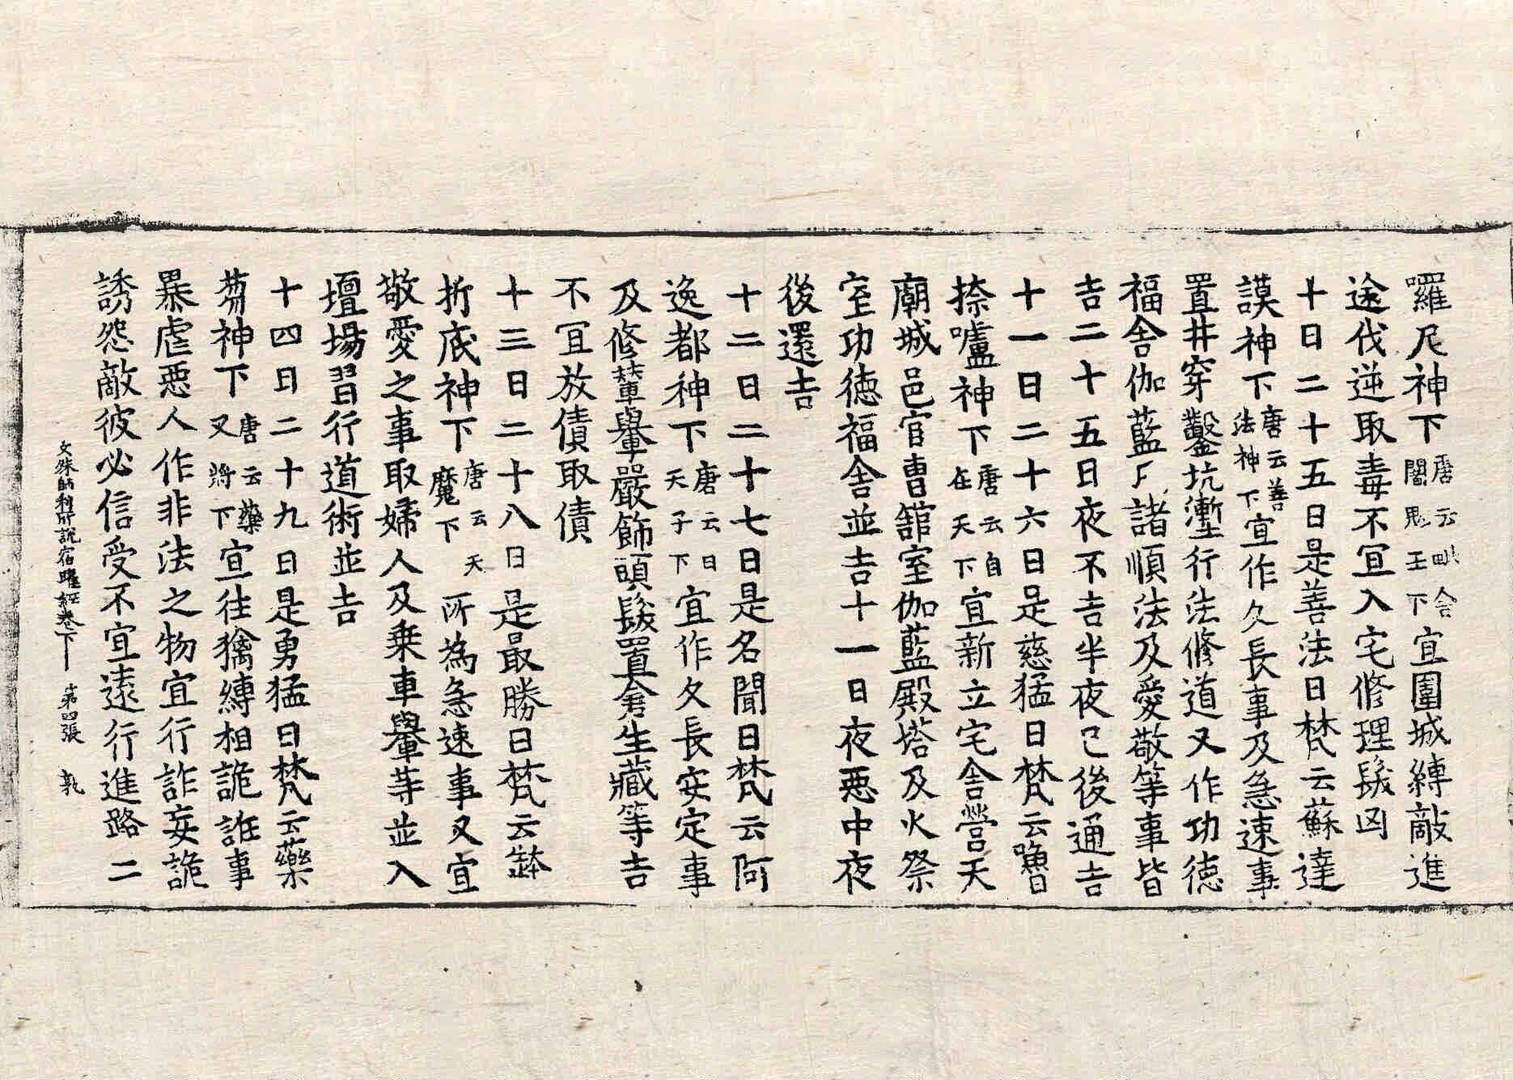 囉尼神下唐云毗舍闍鬼王下宜圍城縛敵進
途伐逆取毒不宜入宅修理髮凶
十日二十五日是善法日梵云蘇達
謨神下唐云善法神下宜作久長事及急速事
置井穿鑿坑塹行法修道又作功德
福舍伽藍尸諸順法及愛敬等事皆
吉二十五日夜不吉半夜已後通吉
十一日二十六日是慈猛日梵云嚕
捺嚧神下唐云自在天下宜新立宅舍營天
廟城邑官曹館室伽藍殿塔及火祭
室功德福舍並吉十一日夜惡中夜
後還吉
十二日二十七日是名聞日梵云阿
逸都神下唐云日天子下宜作久長安定事
及修輦轝嚴飾頭髮置倉生藏等吉
不宜放債取債
十三日二十八日是最勝日梵云
折底神下唐云天魔下所為急速事又宜
敬愛之事取婦人及乗車轝等並入
壇場習行道術並吉
十四日二十九日是勇猛日梵云藥
芻神下唐云藥叉將下宜往擒縛相詭誑事
暴虐惡人作非法之物宜行詐妄詭
誘怨敵彼必信受不宜遠行進路二
文殊師利所說宿曜經卷下 第四張 孰